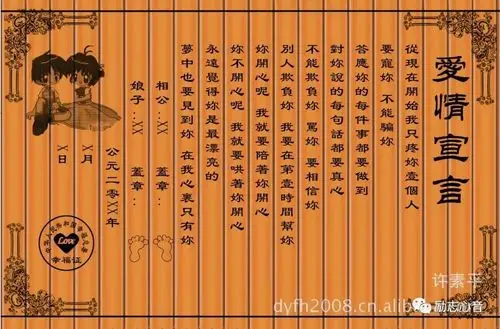 愛情宣言
從現在開始我只疼妳壹個人
要寵妳 不能騙妳
答應妳的每件事都要做到
對妳說的每句話都要真心
不能欺負妳 罵妳 要相信妳
別人欺負妳 我要在第壹時間幫妳
妳開心呢 我就要陪着妳開心
妳不開心呢 我就要哄着妳開心
永遠覺得妳是最漂亮的
夢中也要見到妳 在我心裏只有妳
相公:XX 蓋章:
娘子:XX 蓋章:
公元二零XX年
X月
X日
Love
幸福证
许素平
dyfh2008.cn.alib
励志心音